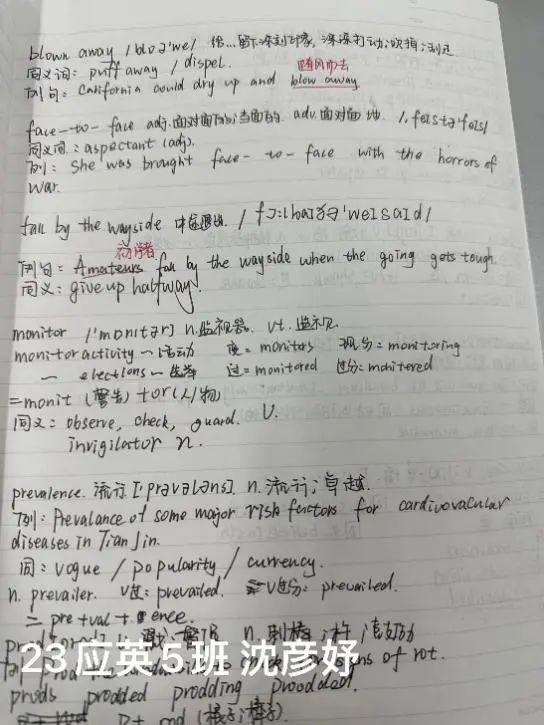 blown away /bləʊə'weɪ/ 给...留下深刻印象, 深深打动;吹掉;刮走
同义词: puff away / dispel.
随风而去
例句: California could dry up and blow away.
face-to-face adj.面对面的;当面的. adv.面对面地 /.feɪstə'feɪs/
同义词: aspectant (adj).
例: She was brought face-to-face with the horrors of
war.
fall by the wayside 中途退出. /fɔ:lbaɪðə'weɪsaɪd/
初学者
例句: Amateurs fall by the wayside when the going gets tough.
同义: give up halfway.
monitor /'mɒnɪtər] n.监视器. vt.监视.
monitor activity ~活动 复= monitors 现分= monitoring
~ elections ~选举 过= monitored 过分: monitored
= monit (警告) + or (人/物)
同义: observe, check, guard. V.
invigilator n.
prevalence. 流行 ['prevələns]. n.流行;卓越.
例: Prevalance of some major risk factors for cardiovacular
diseases in TianJin.
同: vogue / popularity / currency.
n. prevailer. V过: prevailed. V过分: prevailed.
= pre + val + ence.
prod n.刺棒;杵;
of rot.
prods prodded prodding proodded.
23应英5班 沈彦妤